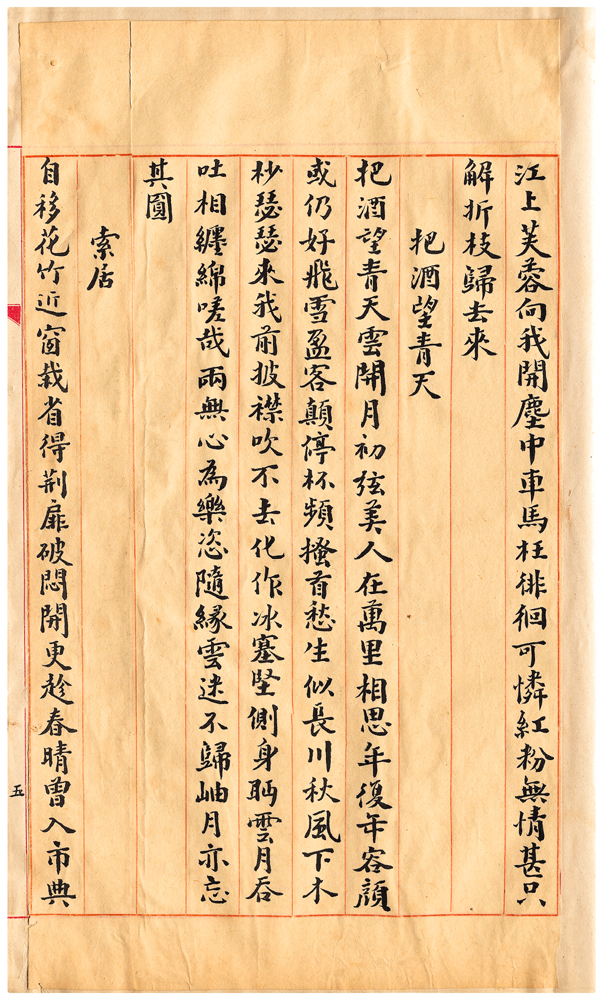 江上芙蓉向我開塵中車馬枉徘徊可憐紅粉無情甚只
解折枝歸去來
把酒望青天
把酒望青天雲開月初弦美人在萬里相思年復年容顏
或仍好飛雪盈客顛停杯頻搔首愁生似長川秋風下木
杪瑟瑟來我前披襟吹不去化作冰塞堅側身眄雲月吞
吐相纏綿嗟哉兩無心為樂恣隨緣雲迷不歸岫月亦忘
其圓
索居
自移花竹近窗栽省得荆扉破悶開更趁春晴曾入市典
五